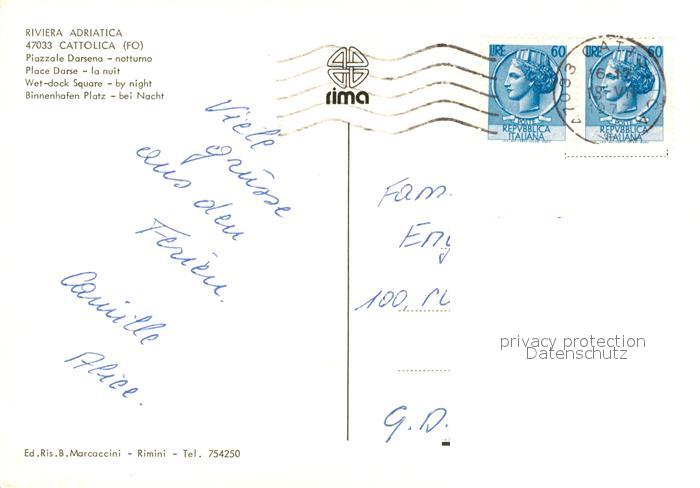 RIVIERA ADRIATICA
47033 CATTOLICA (FO)
Piazzale Darsena - notturno
Place Darse - la nuit
Wet-dock Square - by night
Binnenhafen Platz - bei Nacht
rima
LIRE 60
LIRE 60
POSTE
REPVBBLICA
ITALIANA
POSTE
REPVBBLICA
ITALIANA
47033 CATTOLICA
Viele
grüsse
aus den
Ferien.
Camille
Alice.
Fam.
100,
G.D.
privacy protection
Datenschutz
Ed.Ris.B.Marcaccini - Rimini - Tel. 754250